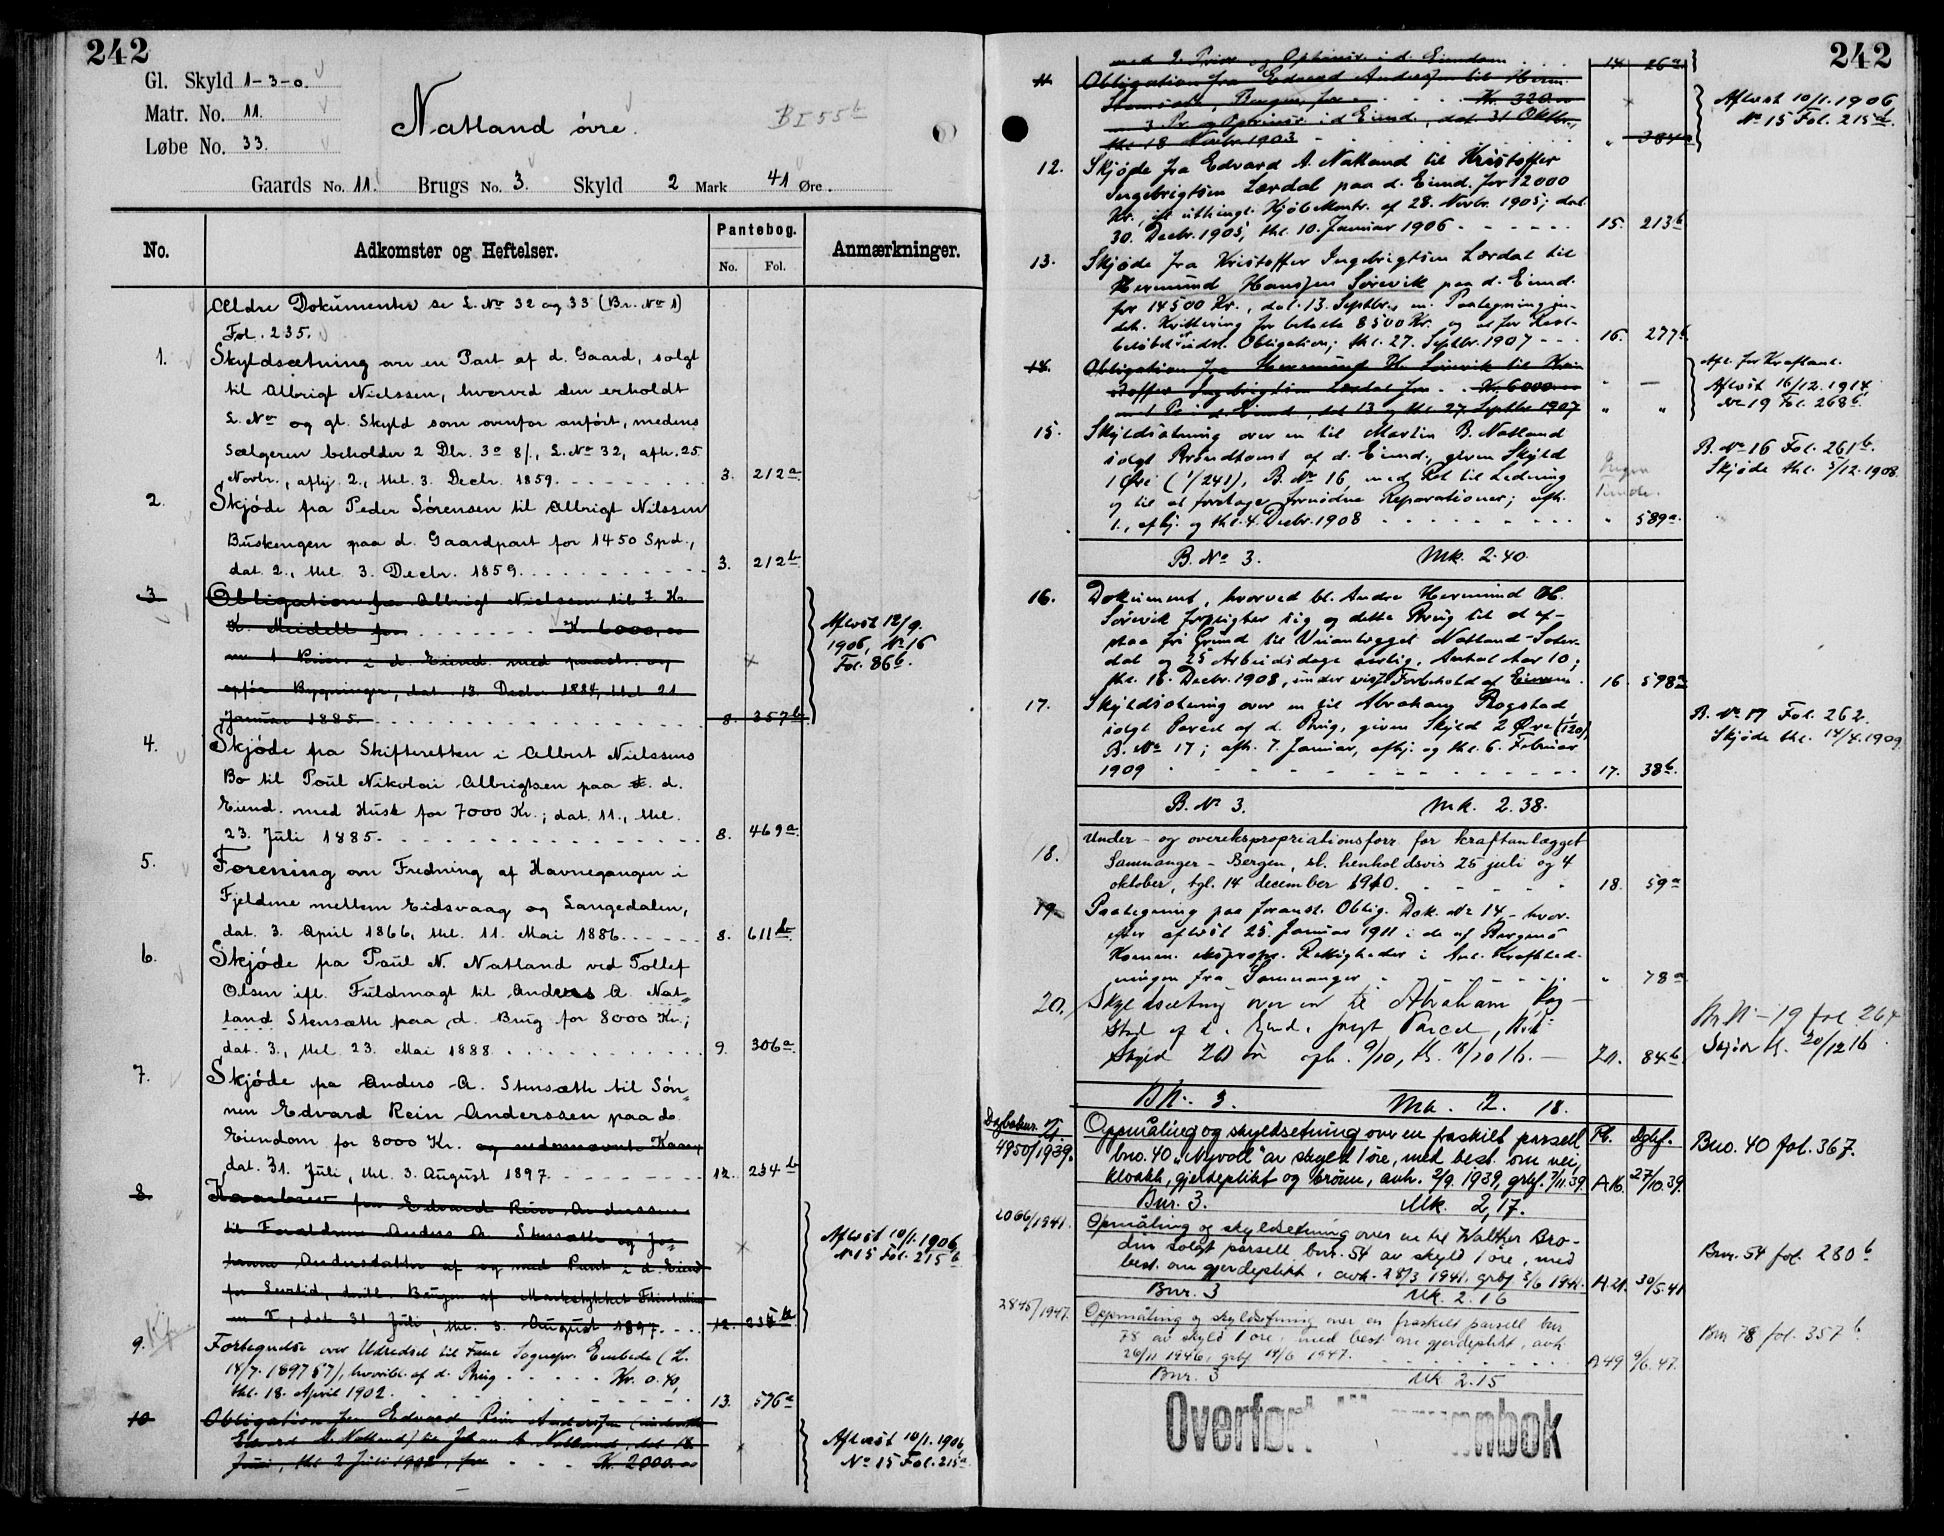 242
Gl. Skyld 1-3-0.
Matr. No. 11.
Løbe No. 33.
Natland øvre.
BI 55b
Gaards No. 11. Brugs No. 3. Skyld 2 Mark 41 Øre.
No. Adkomster og Heftelser. Pantebog. No. Fol. Anmærkninger.
Ældre Dokumenter se L. No 32 og 33 (Br. No 1)
Fol. 235.
1. Skyldsætning om en Part af d. Gaard, solgt
til Albrigt Nielssen, hvorved den erholdt
L. No og gl. Skyld som ovenfor anført, medens
Sælgeren beholder 2 Dlr. 3 o 8 /., L. No 32, afh. 25
Novbr., afhj. 2., thl. 3. Decbr. 1859. 3. 212a
2. Skjøde fra Peder Sørensen til Albrigt Nilssen
Buskengen paa d. Gaardpart for 1450 Spd.,
dat. 2., thl. 3. Decbr. 1859. 3. 212b
3. Obligation fra Albrigt Nielssen til F. H.
K. Meidell for K. 6000,00
m 1 Prior. i d. Eiend. med paast. og
opfør Bygninger, dat. 13. Decbr 1884, thl 21
Januar 1885. 8. 357b
Aflæst 12/9.
1906, No 16
Fol. 86b.
4. Skjøde fra Skifteretten i Albert Nielssens
Bo til Poul Nikolai Albrigtsen paa d.
Eiend. med Husk for 7000 Kr.; dat. 11., thl.
23. Juli 1885. 8. 469a
5. Forening om Fredning af Havnegangen i
Fjeldene mellem Eidsvaag og Langedalen,
dat. 3. April 1866, thl. 11. Mai 1886. 8. 611b
6. Skjøde fra Paul N. Natland ved Tollef
Olsen ifl. Fuldmagt til Anders A. Nat-
land Stensæth paa d. Brug for 8000 Kr.;
dat. 3., thl. 23. Mai 1888 9. 306a
7. Skjøde fra Anders A. Stensæth til Søn-
nen Edvard Rein Anderssen paa d.
Eiendom for 8000 Kr. og nedennævnte Kaar,
dat. 31. Juli, thl. 3. August 1897. 12. 234b
8. Kaarbrev fra Edvard Rein Anderssen
til Forældrene Anders A. Stensæth og Jo-
hanne Andersdatter af og med Pant i d. Eiend
for Levetid, Brugen af Markestykket
m V, dat 31 Juli, thl. 3. August 1897. 12. 235b
Aflæst 10/1. 1906
No 15 Fol. 215b
9. Fortegnelse over Udredsel til Fane Sognepr. Embede (L.
14/7. 1897 § 7), hvoribl. af d. Brug Kr. 0.40,
thl. 18. April 1902. 13. 576a
10 Obligation fra Edvard Rein Anderssen
Edvard A. Natland) til Johan A. Natland, dat 18.
Juni, thl 2 Juli 1902, for K. 2000.00
Aflæst 10/1. 1906
No 15 Fol. 215a
242
med 2. Prior og Opterinsr i d. Eiendom 14. 26a
11 Obligation fra Edvard Anderssen til Herm.
Bergen, for Kr. 320.00
m 3. Pr. og Opterinsr i d. Eiend., dat. 31 Oktbr.,
thl 18 Novbr. 1903 " 384a
Aflæst 10/1. 1906
No 15 Fol. 215b.
12. Skjøde fra Edvard A. Natland til Kristoffer
Ingebrigtsen Lærdal paa d. Eiend. for 12000
Kr., ifl uthingl. Kjøbekontr. af 28. Novbr. 1905; dat
30. Decbr. 1905, thl. 10. Januar 1906 15. 213b
13. Skjøde fra Kristoffer Ingebrigtsen Lærdal til
Hermund Hanssen Sørevik paa d. Eiend.
for 14500 Kr., dat. 13. Septbr., m. Paategning in-
deh. Kvittering for betalte 8500 Kr. og at for Rest-
beløbet er udst. Obligation; thl. 27. Septbr. 1907 16. 277b
14. Obligation fra Hermund H. Sørevik til Kris-
toffer Ingebrigtsen Lærdal for Kr. 6000.00 " —
m 1 Pr i d. Eiend., dat 13 og thl. 27. Septbr. 1907 " "
Afl. for Kraftanl.
Aflæst 16/12. 1914
No 19 Fol. 268b.
15. Skyldsætning over en til Martin B. Natland
solgt Brøndtomt af d. Eiend., given Skyld
1 Øre (1/241), B. No 16, med Ret til Ledning
og til at foretage fornødne Reparationer; afh.
1., afhj. og thl. 4. Decbr. 1908 " 589a.
Ingen
B. No 16 Fol. 261b.
Skjøde thl. 5/12. 1908
B. No 3. Mk. 2.40
16. Dokument, hvorved bl. Andre Hermund H.
Sørevik forpligter sig og dette Brug til at af-
staa fri Grund til Veianlægget Natland-Søder-
dal og 25 Arbeidsdage aarlig. Antal Aar 10;
thl. 18. Decbr. 1908, under visst Forbehold af Eieren. 16. 598a
17. Skyldsætning over en til Abraham Rogstad
solgt Parcel af d. Brug, given Skyld 2 Øre (1/120),
B. No 17; afh. 7. Januar, afhj. og thl. 6. Februar
1909 17. 38b.
B. No 17 Fol. 262.
Skjøde thl. 14/4. 1909
B. No 3. Mk. 2.38.
18. Under- og overekspropriationsforr. for kraftanlægget
Samnanger - Bergen, sl. henholdsvis 25 juli og 4
oktober, tgl. 14 december 1910. 18. 59a
19. Paategning paa foranst. Oblig. Dok. No 14, hvor-
efter aflæst 25. Januar 1911 i de af Bergens
Komm. expropr. Rettigheder i Anl. Kraftled-
ningen fra Samnanger " 78a
20. Skyldsætning over en til Abraham Rog-
stad af d. Eiend. solgt Parcel,
Skyld 20 Øre afh. 9/10, th. 18/10 16. 21. 84b
Br. N. 19 fol. 264
Skjøde th. 20/12 16
B.N. 3. Mk. 2. 18.
Dagboknr.
4950/1939.
Oppmåling og skyldsetning over en fraskilt parsell Pb. Dglf.
bno. 40 „Nyvoll" av skyld 1 øre, med best. om vei,
kloakk, gjerdeplikt og brønn, avh. 2/9. 1939, grbf. 7/11. 39. A16. 27/10. 39.
Bno. 40 fol. 367.
Bnr. 3. Mk. 2,17.
2066/1941.
Opmåling og skyldsetning over en til Walther Bro-
din solgt parsell, bnr. 54 av skyld 1 øre, med
best. om gjerdeplikt, avh. 28/3 1941, grbf. 3/6 1941. A21. 30/5. 41
Bnr. 54 fol. 280b
Bnr. 3 Mk. 2.16
2845/1947.
Oppmåling og skyldsetning over en fraskilt parsell bnr
78 av skyld 1 øre, med best om gjerdeplikt, avh.
26/11 1946, grbf 14/6 1947. A49 9/6. 47.
Bnr 78 fol. 357b
Bnr. 3 Mk 2.15
Overført til grunnbok